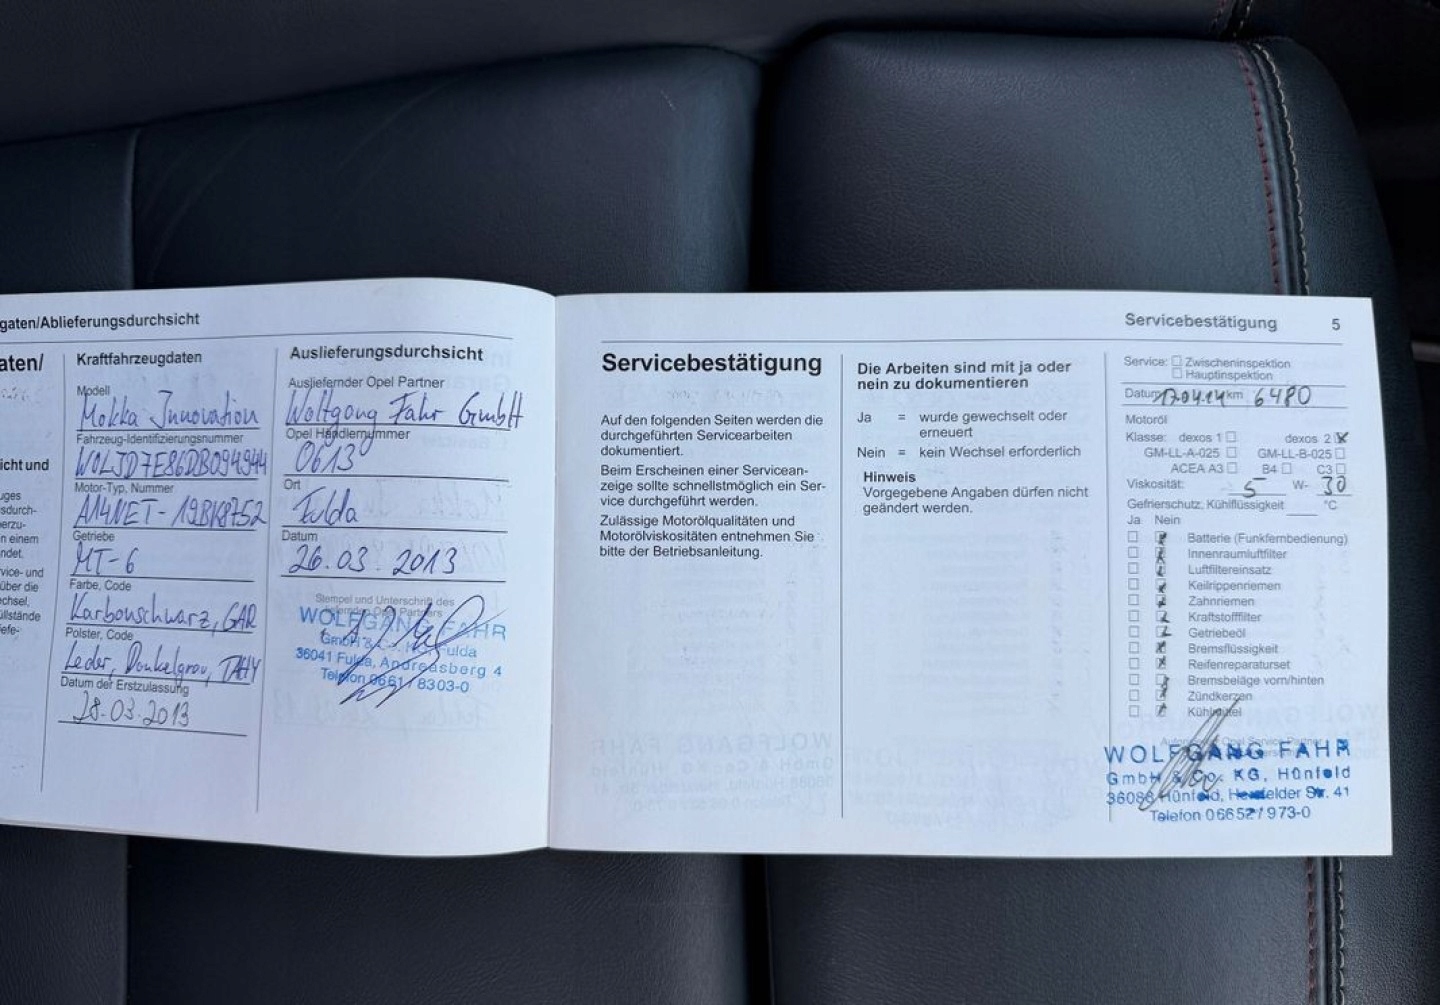 gaten/Ablieferungsdurchsicht
aten/
icht und
uges
sdurch-
erzu-
n einem
ndet.
vice- und
über die
chsel,
üllstände
efe-
Kraftfahrzeugdaten
Modell
Mokka Innovation
Fahrzeug-Identifizierungsnummer
W0LJD7E86DB094944
Motor-Typ, Nummer
A14NET - 19BK8752
Getriebe
MT-6
Farbe, Code
Karbonschwarz, GAR
Polster, Code
Leder, Dunkelgrau, TAHY
Datum der Erstzulassung
28.03.2013
Auslieferungsdurchsicht
Ausliefernder Opel Partner
Wolfgang Fahr GmbH
Opel Händlernummer
0613
Ort
Fulda
Datum
26.03.2013
Stempel und Unterschrift des
ausliefernden Opel Partners
WOLFGANG FAHR
GmbH & Co. KG, Fulda
36041 Fulda, Andreasberg 4
Telefon 0661 / 8303-0
Servicebestätigung 5
Servicebestätigung
Auf den folgenden Seiten werden die
durchgeführten Servicearbeiten
dokumentiert.
Beim Erscheinen einer Servicean-
zeige sollte schnellstmöglich ein Ser-
vice durchgeführt werden.
Zulässige Motorölqualitäten und
Motorölviskositäten entnehmen Sie
bitte der Betriebsanleitung.
Die Arbeiten sind mit ja oder
nein zu dokumentieren
Ja = wurde gewechselt oder
erneuert
Nein = kein Wechsel erforderlich
Hinweis
Vorgegebene Angaben dürfen nicht
geändert werden.
Service: Zwischeninspektion
Hauptinspektion
Datum 17.04.14 km 6480
Motoröl
Klasse: dexos 1 dexos 2
GM-LL-A-025 GM-LL-B-025
ACEA A3 B4 C3
Viskosität: 5 W- 30
Gefrierschutz, Kühlflüssigkeit °C
Ja Nein
Batterie (Funkfernbedienung)
Innenraumluftfilter
Luftfiltereinsatz
Keilrippenriemen
Zahnriemen
Kraftstofffilter
Getriebeöl
Bremsflüssigkeit
Reifenreparaturset
Bremsbeläge vorn/hinten
Zündkerzen
Kühlmittel
WOLFGANG FAHR
GmbH & Co. KG, Hünfeld
36088 Hünfeld, Hersfelder Str. 41
Telefon 06652 / 973-0